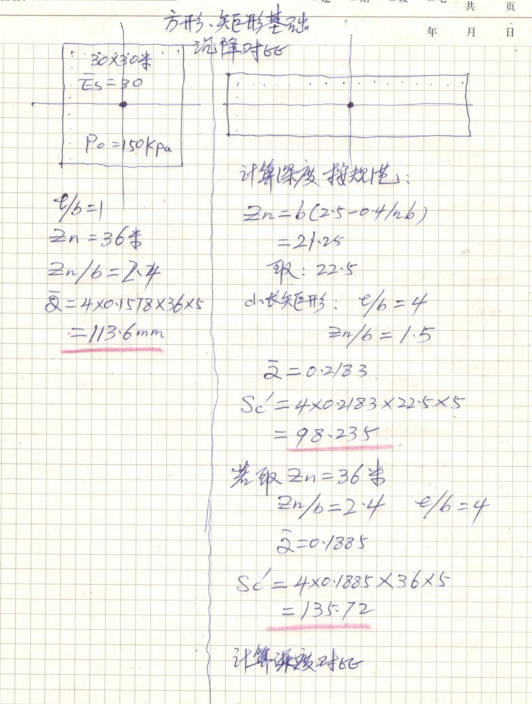 共 页
年 月 日
方形、矩形基础
沉降对比
30×30米
Es=30
Po=150Kpa
l/b=1
Zn=36米
Zn/b=2.4
ᾱ=4×0.1578×36×5
=113.6mm
计算深度 按规范:
Zn=b(2.5-0.4lnb)
=21.25
取:22.5
小长矩形: l/b=4
Zn/b=1.5
ᾱ=0.2183
Sc′=4×0.2183×22.5×5
=98.235
若取Zn=36米
Zn/b=2.4 l/b=4
ᾱ=0.1885
Sc′=4×0.1885×36×5
=135.72
计算深度对比